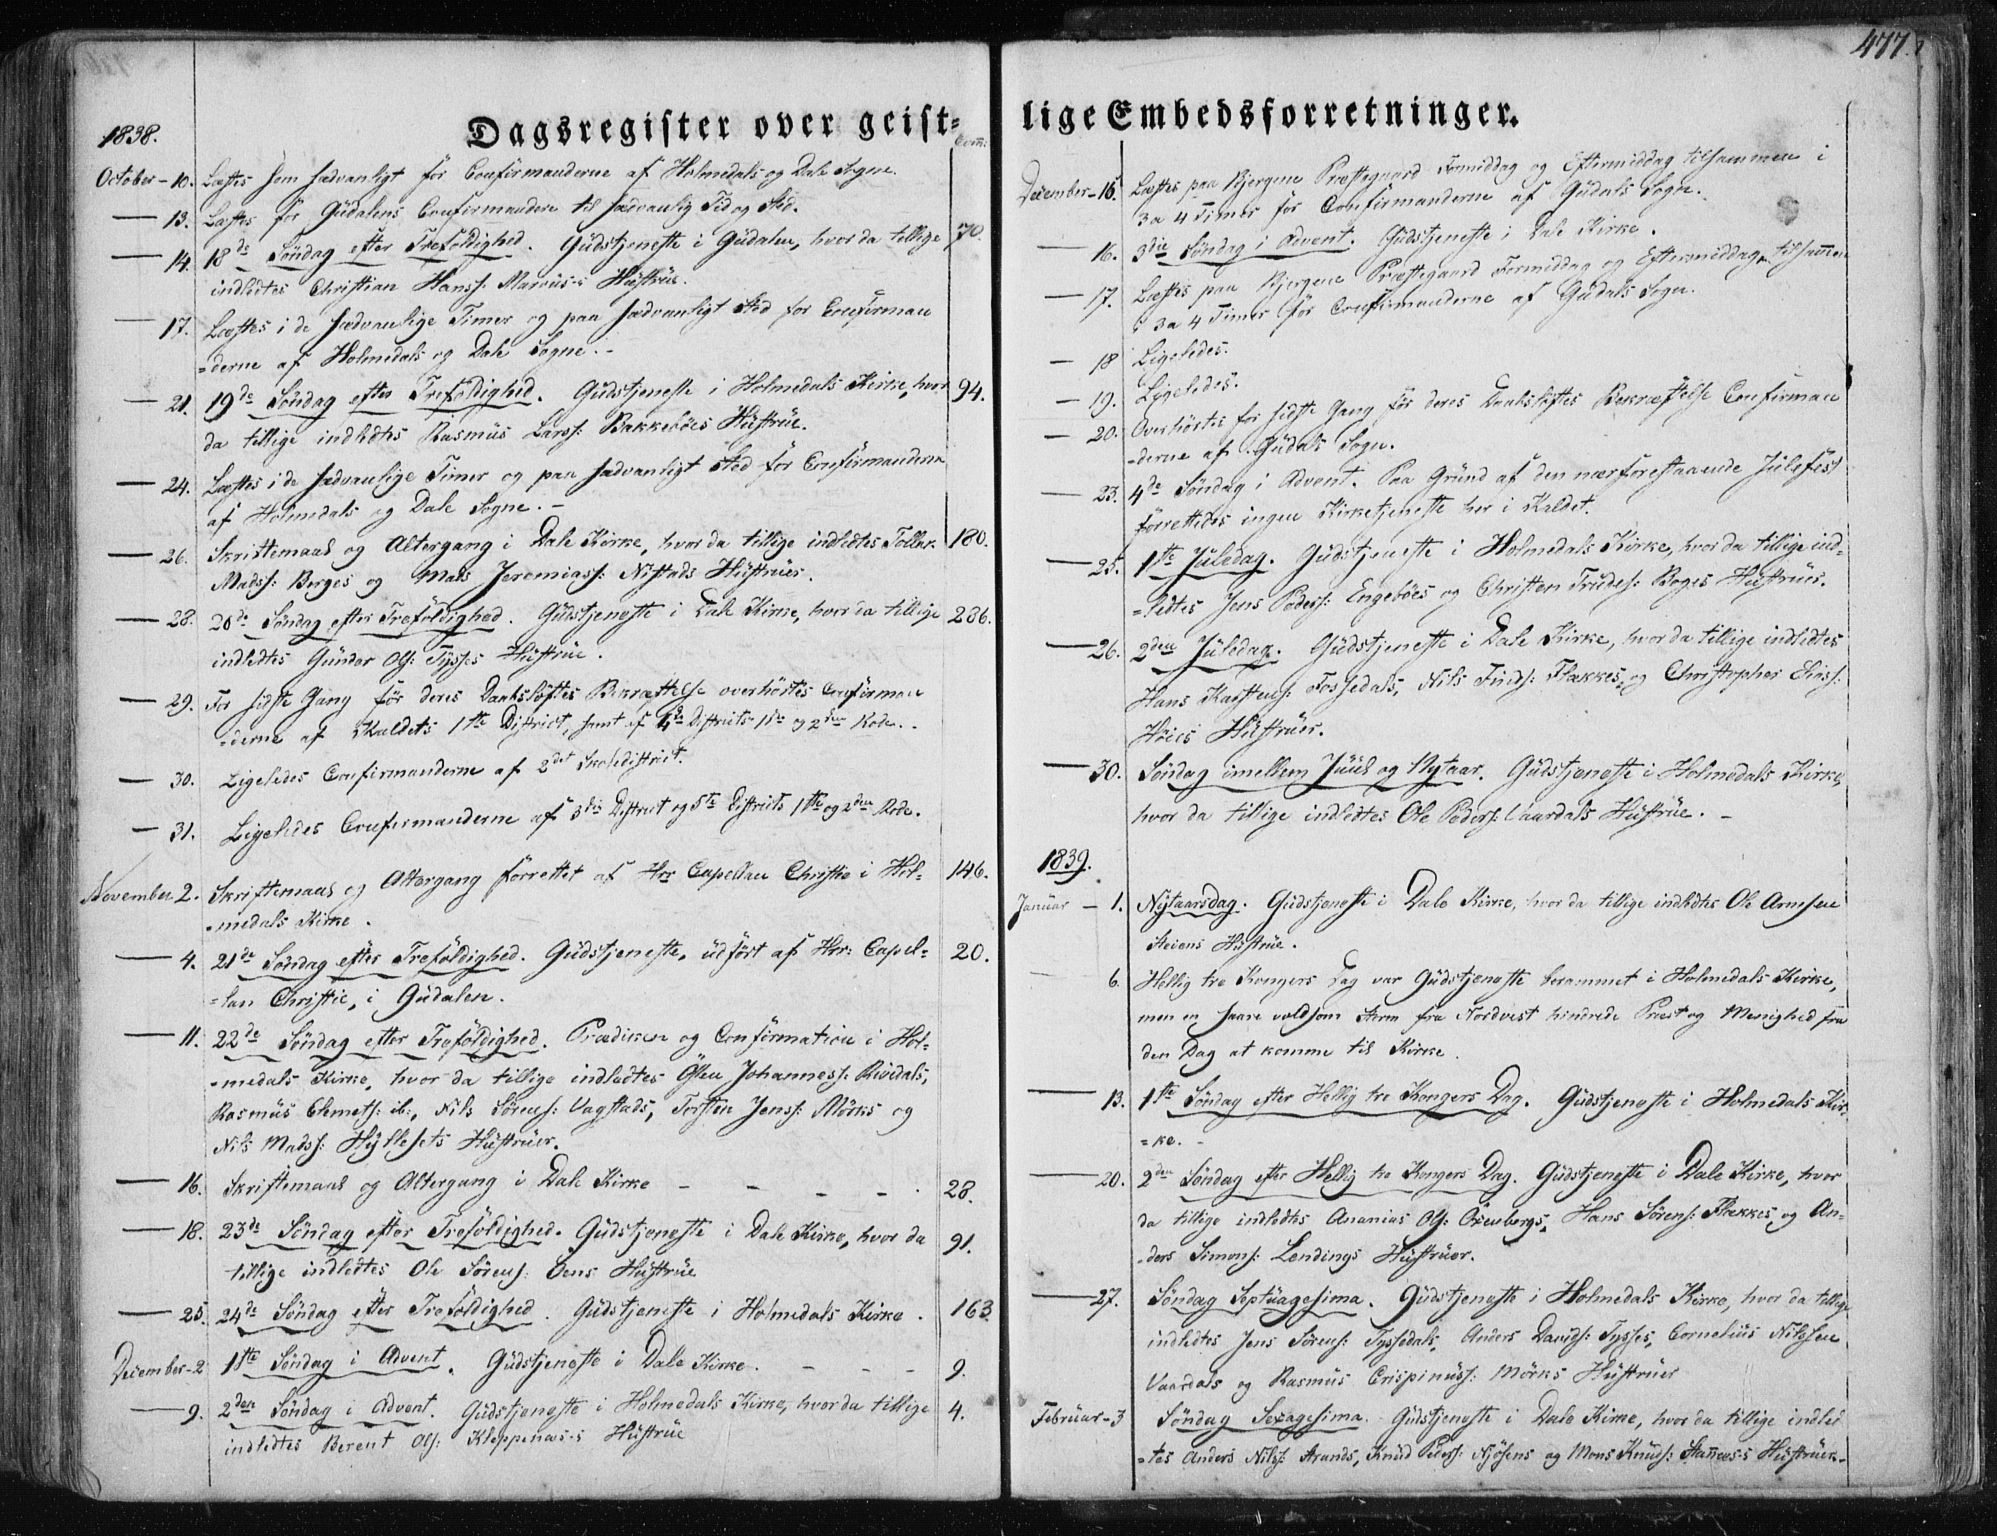 Dagsregister over geist=
Com̄:
1838.
October – 10. Læstes som sædvanligt for Confirmanderne af Holmedals og Dale Sogne.
— 13. Læstes for Gudalens Confirmandere til sædvanlig Tid og Sted.
— 14. 18de Søndag efter Trefoldighed. Gudstjeneste i Gudalen, hvor da tillige 70.
indledtes Christian Hanss: Marøus-s Hustrue.
— 17. Læstes i de sædvanlige Timer og paa sædvanligt Sted for Confirman
=derne af Holmedals og Dale Sogne. –
— 21. 19de Søndag efter Trefoldighed. Gudstjeneste i Holmedals Kirke, hvor 94.
da tillige indledtes Rasmus Larss: Bakkebøes Hustrue.
— 24. Læstes i de sædvanlige Timer og paa sædvanligt Sted for Confirmanderne
af Holmedals og Dale Sogne. –
— 26. Skriftemaal og Altergang i Dale Kirke, hvor da tillige indledtes Tollak 180.
Madss: Berges og Mads Jeremiass: Nistads Hustruer.
— 28. 20de Søndag efter Trefoldighed. Gudstjeneste i Dale Kirke, hvor da tillige 236.
indledtes Gunder Ols: Tysses Hustrue.
— 29. For sidste Gang før deres Daabsløftes Bekræftelse overhørtes Confirman
=derne af Kaldets 1ste District, samt af 4de Districts 1ste og 2den Rode. .
— 30. Ligeledes Confirmanderne af 2det Skoledistrict.
— 31. Ligeledes Confirmanderne af 3die District og 5te Districts 1ste og 2den Rode.
November 2. Skriftemaal og Altergang forrettet af Hrr Capellan Christie i Hol= 146.
=medals Kirke.
— 4. 21de Søndag efter Trefoldighed. Gudstjeneste, udført af Hrr: Capel= 20.
=lan Christie, i Gudalen.
— 11. 22de Søndag efter Trefoldighed. Prædiken og Confirmation i Hol=
=medals Kirke, hvor da tillige indledtes Østen Johanness: Rivedals,
Rasmus Clemets: ib:, Nils Sørens: Vagstads, Torsten Jenss: Mörks og
Nils Madss: Hyllesets Hustruer.
— 16. Skriftemaal og Altergang i Dale Kirke – – – – . 28.
— 18. 23de Søndag efter Trefoldighed. Gudstjeneste i Dale Kirke, hvor da 91.
tillige indledtes Ole Sørens: Oens Hustrue
— 25. 24de Søndag efter Trefoldighed. Gudstjeneste i Holmedals Kirke . 163
December – 2 1ste Søndag i Advent. Gudstjeneste i Dale Kirke. – – – 9.
— 9. 2den Søndag i Advent. Gudstjeneste i Holmedals Kirke, hvor da tillige 4.
indledtes Berent Ols: Kleppenæs-s Hustrue
477.
lige Embedsforretninger.
December – 15. Læstes paa Bjergene Præstegaard Formiddag og Eftermiddag tilsammen i
3 a 4 Timer for Confirmanderne af Gudals Sogn.
— 16. 3die Søndag i Advent. Gudstjeneste i Dale Kirke.
— 17. Læstes paa Bjergene Præstegaard Formiddag og Eftermiddag tilsam̄en
i 3 a 4 Timer for Confirmanderne af Gudals Sogn.
— 18 Ligeledes.
— 19. Ligeledes.
— 20. Overhørtes for sidste Gang før deres Daabsløftes Bekræftelse Confirman
=derne af Gudals Sogn.
— 23. 4de Søndag i Advent. Paa Grund af den nærforestaaende Julefest
forrettedes ingen Kirketjeneste her i Kaldet.
— 25. 1ste Juledag. Gudstjeneste i Holmedals Kirke, hvor da tillige ind=
=ledtes Jens Peders: Engebøes og Christen Truels: Boges Hustruer.
— 26. 2den Juledag. Gudstjeneste i Dale Kirke, hvor da tillige indledtes
Hans Karstens: Fossedals, Nils Finds: Flækkes, og Christopher Eriss:
Høies Hustruer.
— 30. Søndag imellem Juul og Nytaar. Gudstjeneste i Holmedals Kirke,
hvor da tillige indledtes Ole Peders: Vaardals Hustrue. –
1839.
Januar – 1. Nytaarsdag. Gudstjeneste i Dale Kirke, hvor da tillige indledtes Ole Arnesen
Steiens Hustrue.
6. Hellig tre Kongers Dag var Gudstjeneste berammet i Holmedals Kirke,
men en saare voldsom Storm fra Nordvest hindrede Præst og Menighed fra
den Dag at komme til Kirke.
— 13. 1ste Søndag efter Hellig tre Kongers Dag. Gudstjeneste i Holmedals Kir=
=ke. –
— 20. 2den Søndag efter Hellig tre Kongers Dag. Gudstjeneste i Dale Kirke, hvor
da tillige indledtes Ananias Ols: Oxenbergs, Hans Sørens: Flækkes, og An=
=ders Simons: Lendings Hustruer.
— 27. Søndag Septuagesima. Gudstjeneste i Holmedals Kirke, hvor da tillige
indledtes Jens Sørens: Tyssedals, Anders Davids: Tysses, Cornelius Nilssen
Vaardals og Rasmus Crispinuss: Mörks Hustruer
Februar – 3 Søndag Sexagesima. Gudstjeneste i Dale Kirke, hvor da tillige indled
=tes Anders Nilss: Strands, Knud Peders: Njøsens og Mons Knuds: Stan̄æs-s Hustruer. –